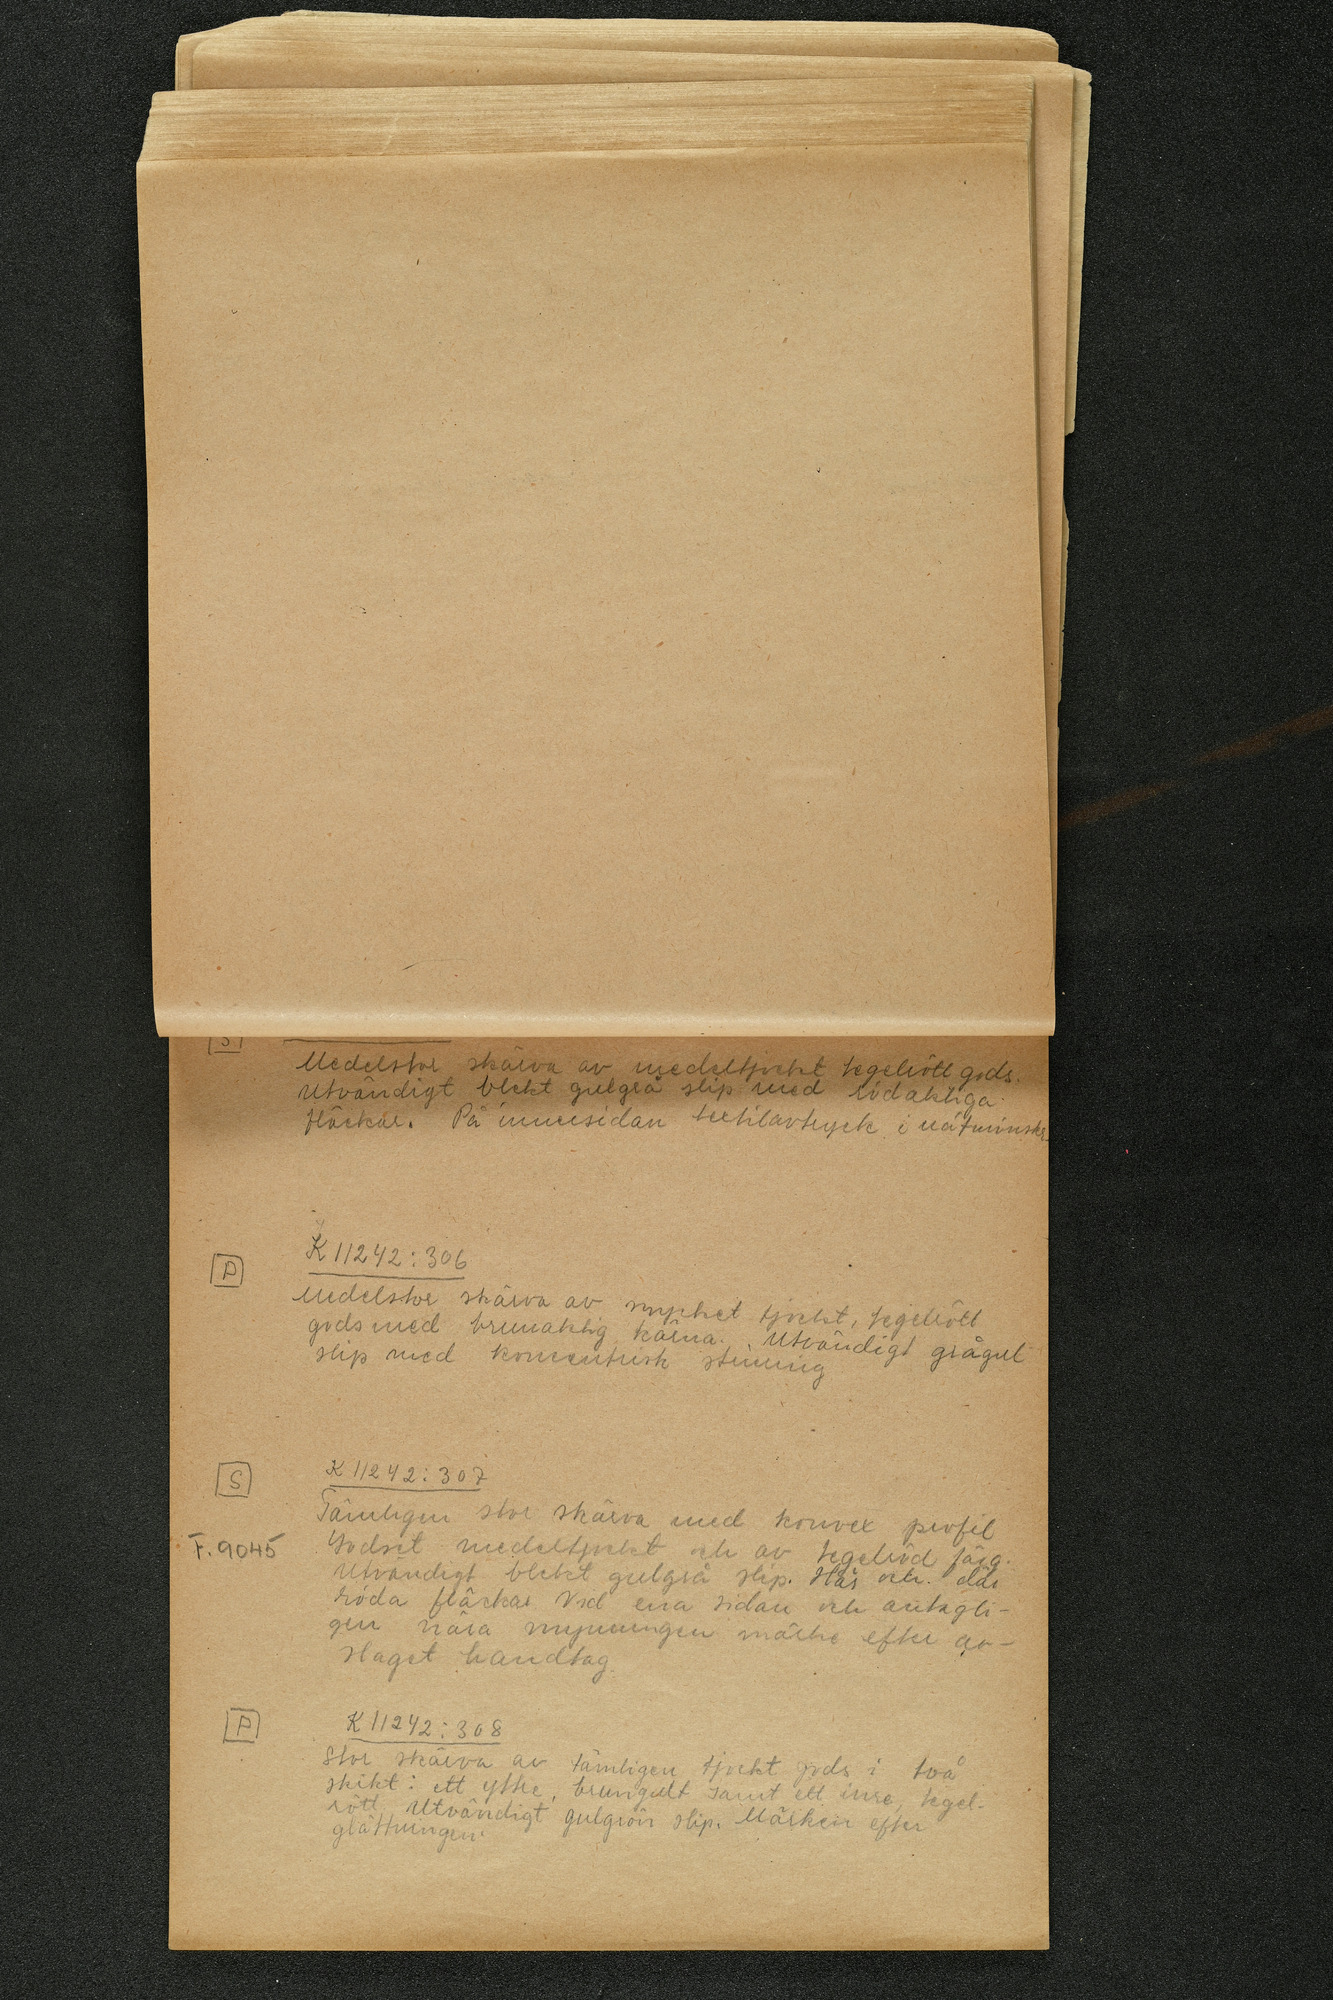 S
Medelstor skärva av medeltjockt tegelrött gods.
Utvändigt blekt gulgrå slip med rödaktiga
fläckar. På innersidan textilavtryck i nätmönster
P
K 11242:306
Medelstor skärva av mycket tjockt, tegelrött
gods med brunaktig kärna. Utvändigt grågul
slip med koncentrisk strimning
S
K 11242:307
Tämligen stor skärva med konvex profil
F. 9045
Godset medeltjockt och av tegelröd färg.
Utvändigt blekt gulgrå slip. Här och där
röda fläckar Vid ena sidan och antagli-
gen nära mynningen märke efter av-
slaget handtag.
P
K 11242:308
Stor skärva av tämligen tjockt gods i två
skikt: ett yttre, brungult samt ett inre, tegel-
rött. Utvändigt gulgrön slip. Märken efter
glättningen.